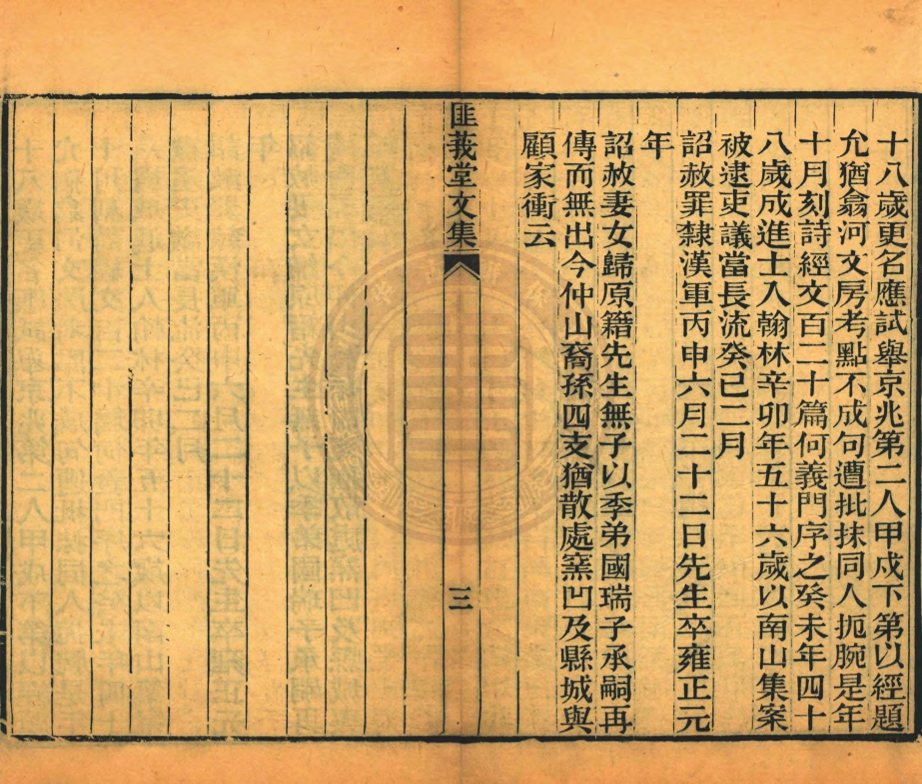 十八歲更名應試舉京兆第二人甲戍下第以經題
允猶翕河文房考點不成句遭批抹同人扼腕是年
十月刻詩經文百二十篇何義門序之癸未年四十
八歲成進士入翰林辛卯年五十六歲以南山集案
被逮吏議當長流癸巳二月
詔赦罪隸漢軍丙申六月二十二日先生卒雍正元
年
詔赦妻女歸原籍先生無子以季弟國瑞子承嗣再
傳而無出今仲山裔孫四支猶散處窯凹及縣城與
顧家衝云
匪莪堂文集
三